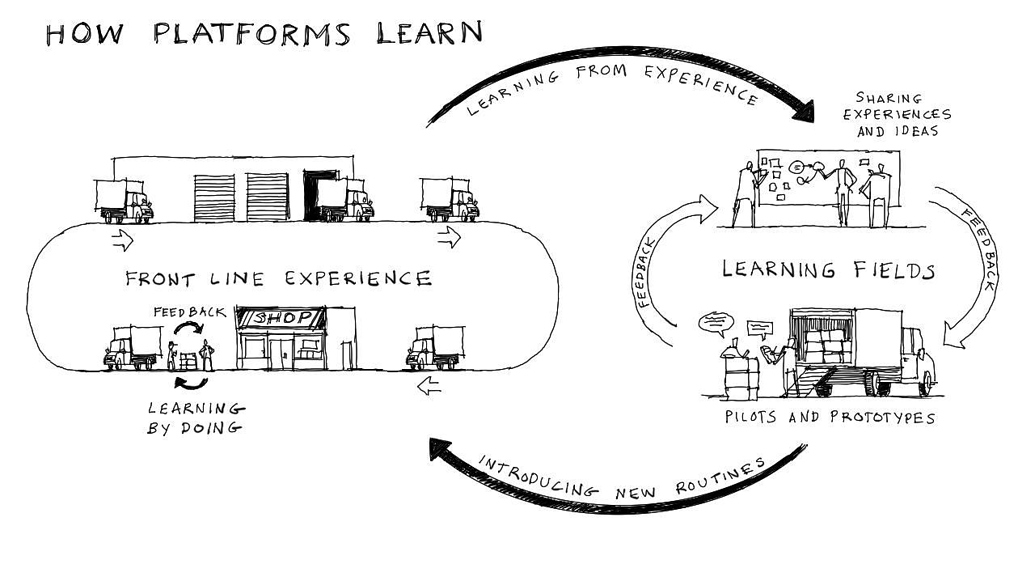 HOW PLATFORMS LEARN
LEARNING FROM EXPERIENCE
SHARING
EXPERIENCES
AND IDEAS
FRONT LINE EXPERIENCE
FEEDBACK
SHOP
LEARNING
BY DOING
FEEDBACK
LEARNING FIELDS
FEEDBACK
PILOTS AND PROTOTYPES
INTRODUCING NEW ROUTINES